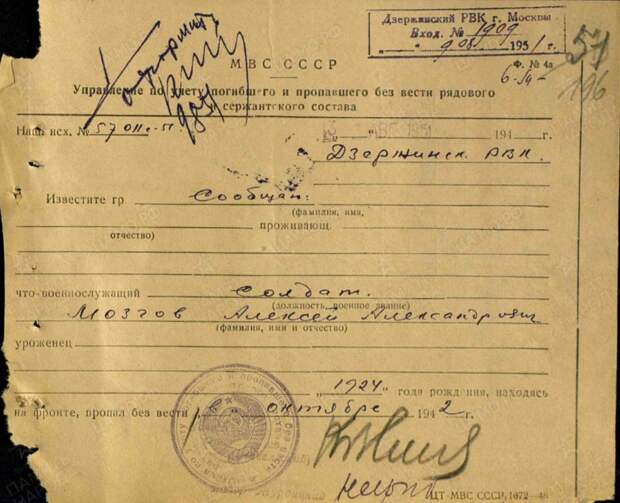 Дзержинский РВК г. Москвы
Вход. № 1909
195 г.
57
196
Ф. № 4а
МВС СССР
Управление по учету погибшего и пропавшего без вести рядового
и сержантского состава
Наш исх. №
194 г.
Дзержинск. РВК.
Известите гр. Сообщаю:
(фамилия, имя,
проживающ.
отчество)
что военнослужащий солдат.
(должность, военное звание)
Мозгов Алексей Александрович
(фамилия, имя и отчество)
уроженец
1924 года рождения, находясь
на фронте, пропал без вести октябре 1942 г.
ЦТ МВС СССР, 1672—48